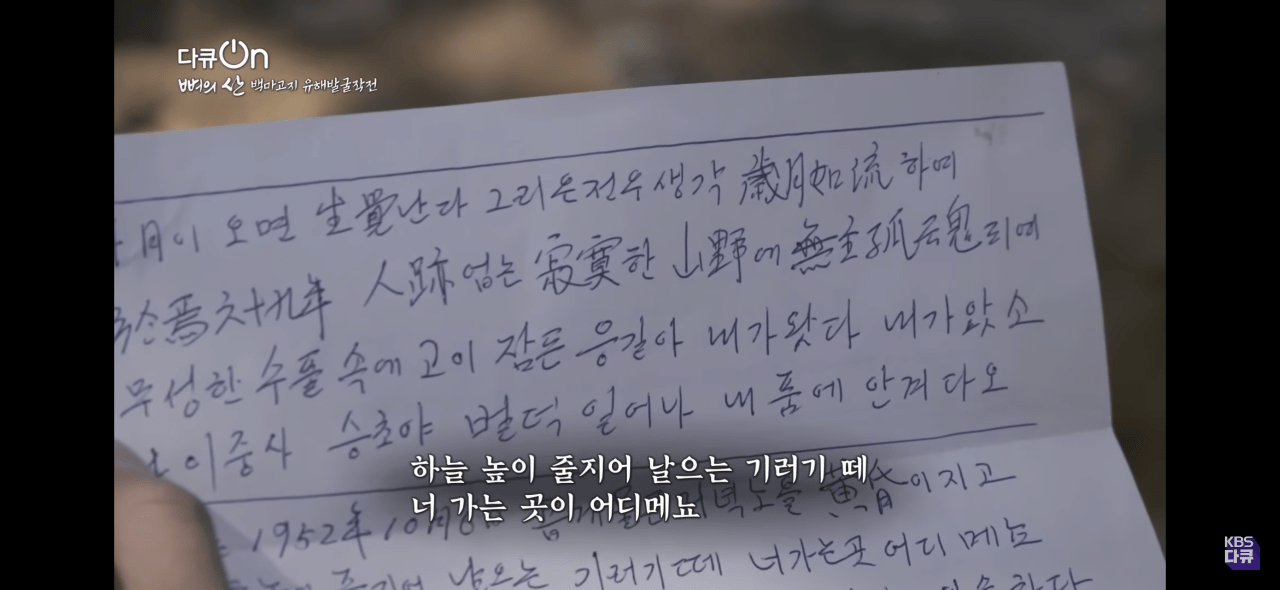 다큐On
뼈의 산 백마고지 유해발굴작전
月이 오면 生覺난다 그리운전우생각 歲月如流하여
焉六十九年 人跡업는 寂寞한 山野에 無主孤魂
무성한 수풀 속에 고이 잠든 응길아 내가왓다 내가왔소
이중사 승초야 벌떡 일어나 내 품에 안겨다오
하늘 높이 줄지어 날으는 기러기 떼
너 가는 곳이 어디메뇨
1952年 10月 저녁노을 黃昏이지고
날으는 기러기떼 너가는곳 어디메뇨
KBS
다큐